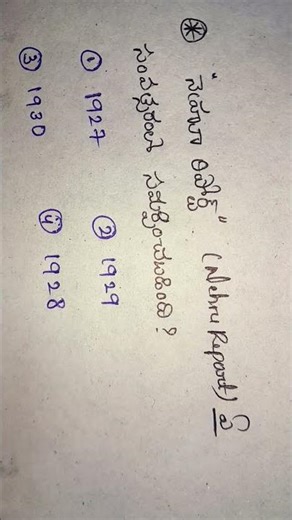 ⊛ "నెహ్రూ రిపోర్ట్". (Nehru Report) ఏ
సంవత్సరంలో సమర్పించబడింది?
① 1927 ② 1929
③ 1930 ④ 1928